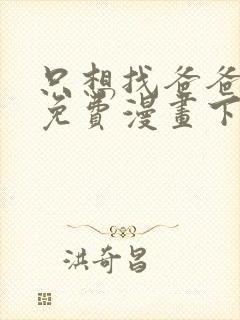 只想找爸爸
免費漫畫下
洪奇昌